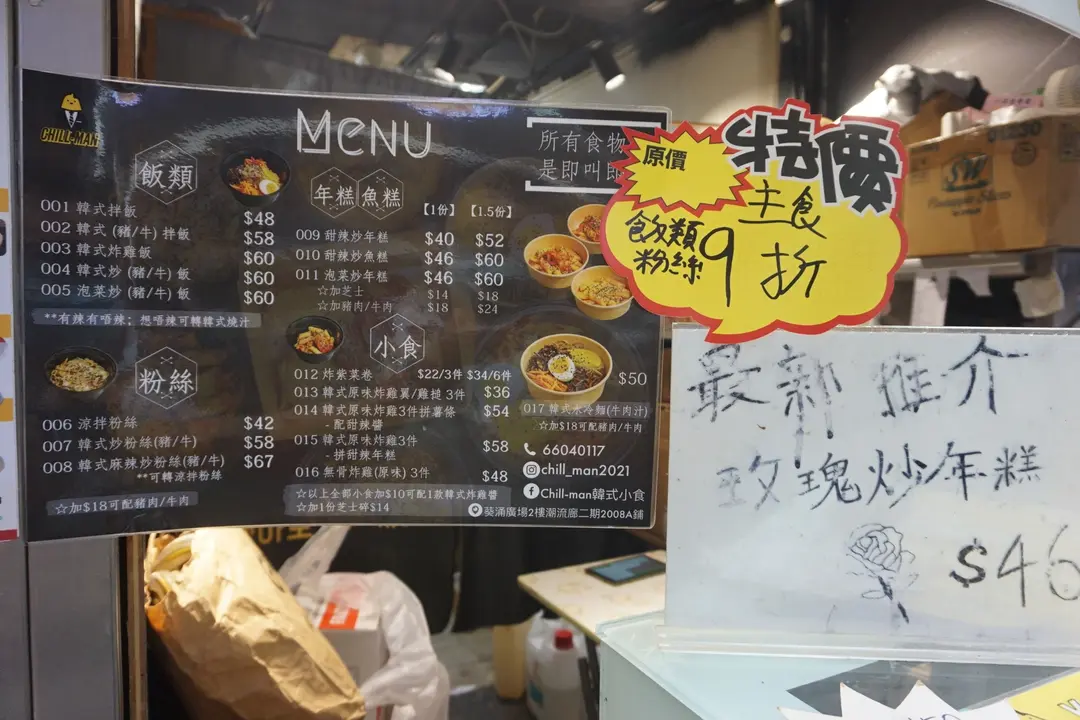 CHILL-MAN
MENU
所有食物
是即叫即
飯類
001 韓式拌飯 $48
002 韓式 (豬/牛) 拌飯 $58
003 韓式炸雞飯 $60
004 韓式炒 (豬/牛) 飯 $60
005 泡菜炒 (豬/牛) 飯 $60
**有辣有唔辣；想唔辣可轉韓式燒汁
粉絲
006 涼拌粉絲 $42
007 韓式炒粉絲(豬/牛) $58
008 韓式麻辣炒粉絲(豬/牛) $67
**可轉涼拌粉絲
☆加$18可配豬肉/牛肉
年糕魚糕
【1份】 【1.5份】
009 甜辣炒年糕 $40 $52
010 甜辣炒魚糕 $46 $60
011 泡菜炒年糕 $46 $60
☆加芝士 $14 $18
☆加豬肉/牛肉 $18 $24
小食
012 炸紫菜卷 $22/3件 $34/6件
013 韓式原味炸雞翼/雞槌 3件 $36
014 韓式原味炸雞3件拼薯條 $54
- 配甜辣醬
015 韓式原味炸雞3件 $58
- 拼甜辣年糕
016 無骨炸雞(原味) 3件 $48
☆以上全部小食加$10可配1款韓式炸雞醬
☆加1份芝士碎$14
$50
017 韓式水冷麵(牛肉汁)
☆加$18可配豬肉/牛肉
66040117
chill_man2021
Chill-man韓式小食
葵涌廣場2樓潮流廊二期2008A鋪
原價
特價
主食
飲類
粉絲
9折
最新推介
玫瑰炒年糕
$46
SW